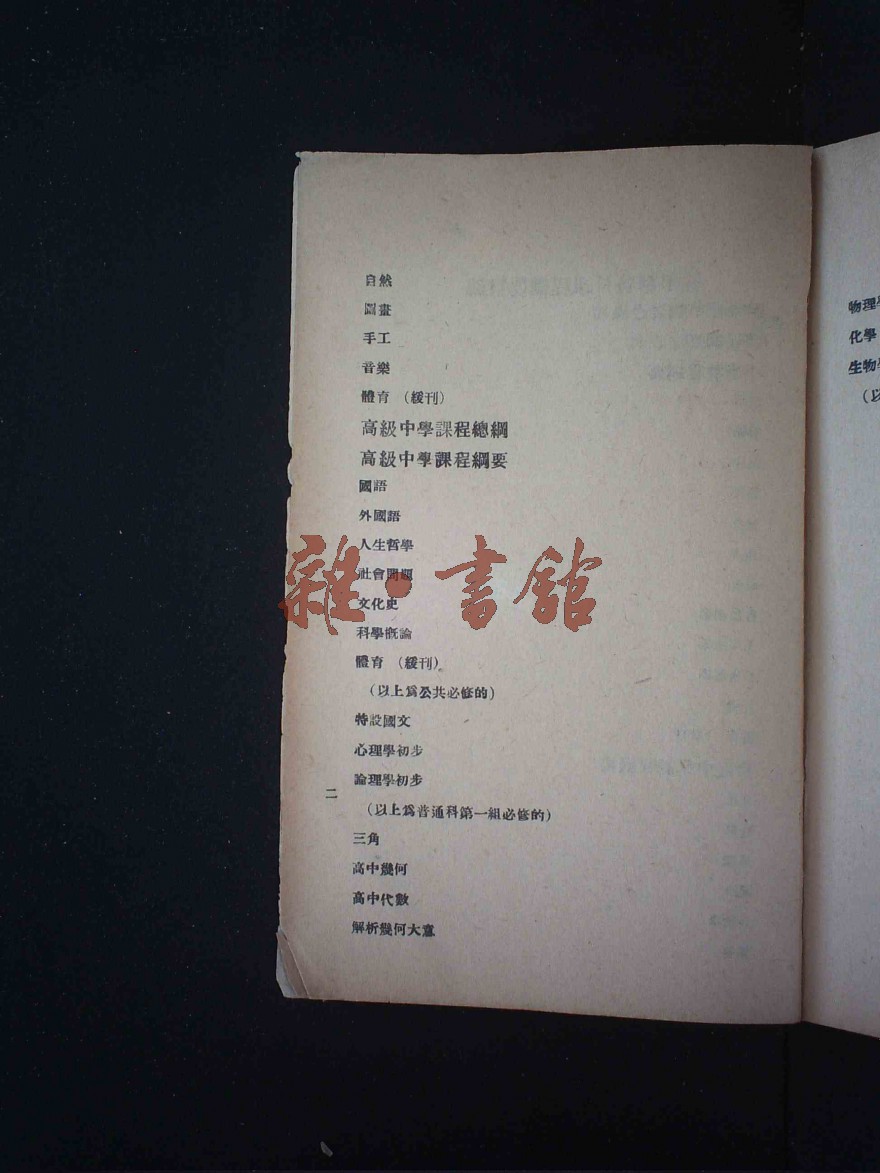 自然
圖畫
手工
音樂
體育 （緩刊）
高級中學課程總綱
高級中學課程綱要
國語
外國語
人生哲學
社會問題
文化史
科學概論
體育 （緩刊）
（以上爲公共必修的）
特設國文
心理學初步
論理學初步
（以上爲普通科第一組必修的）
三角
高中幾何
高中代數
解析幾何大意
二
雜·書館
物理學
化學
生物學
（以